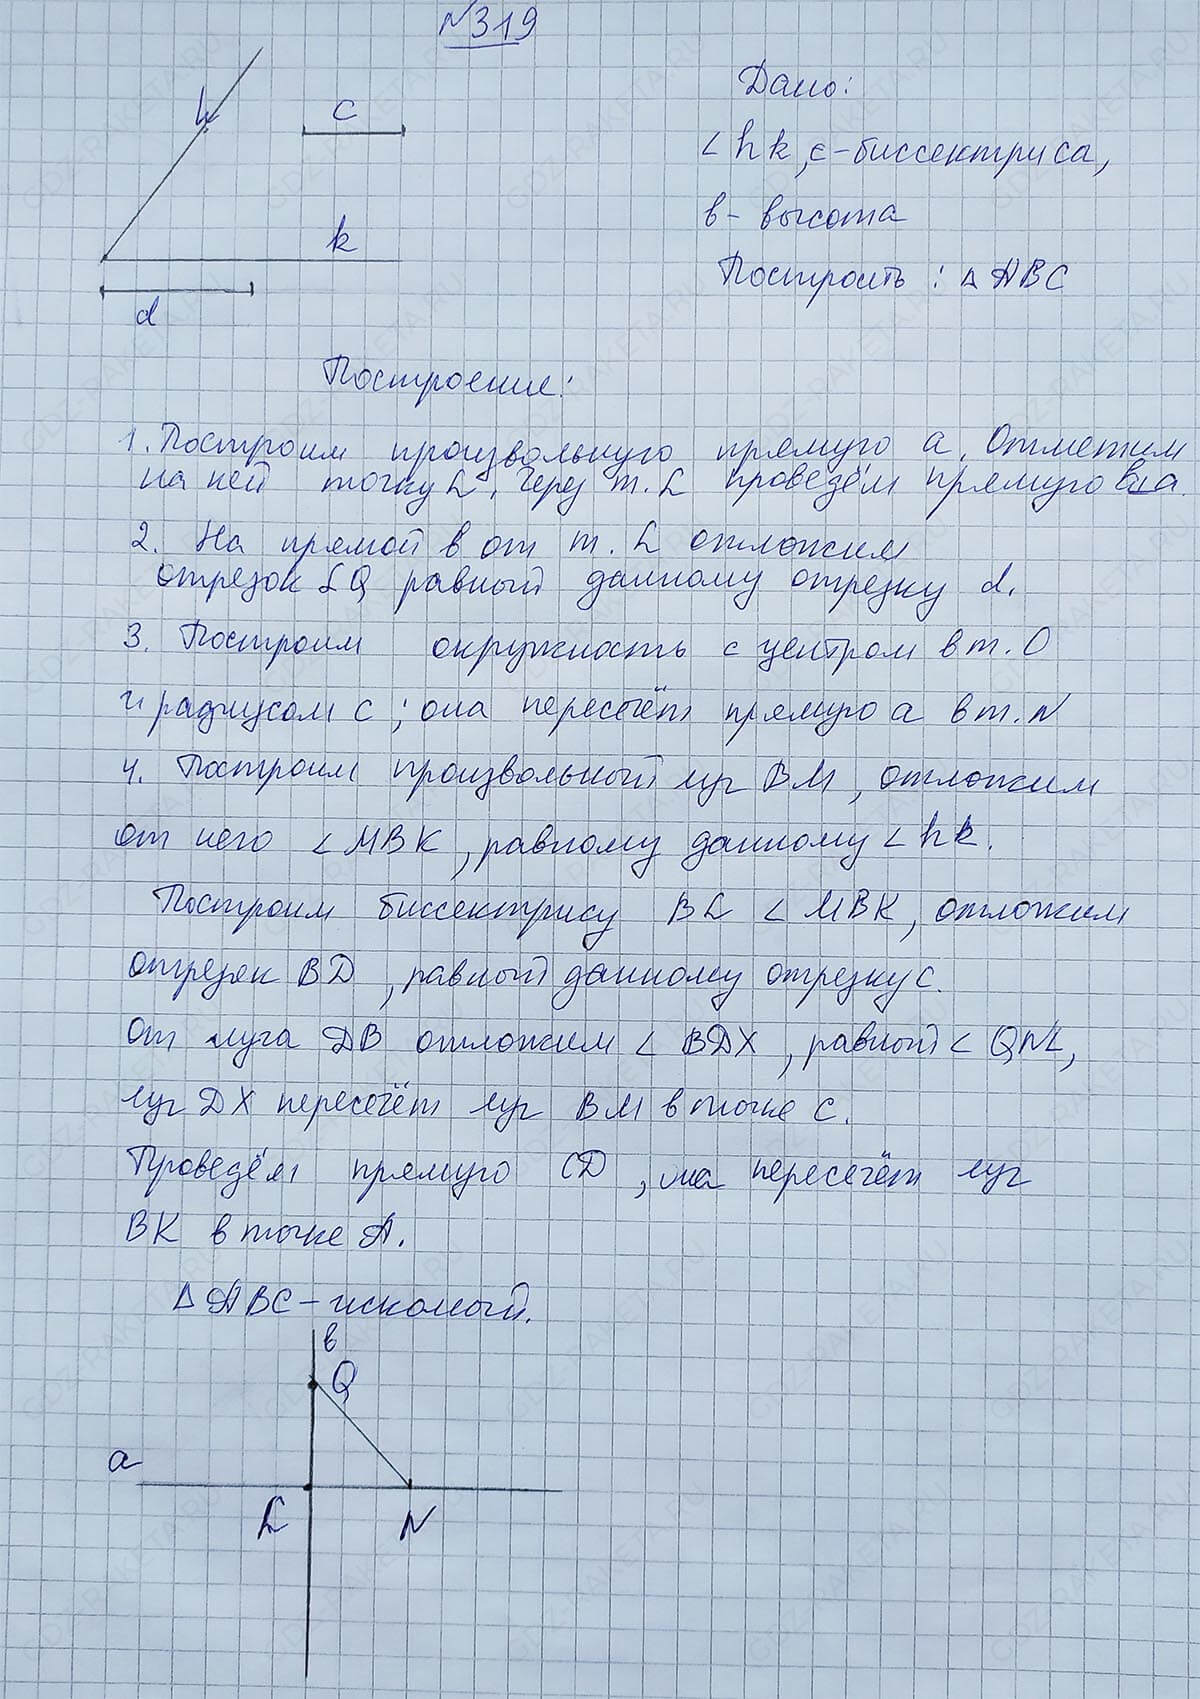 №319
h
c
k
d
Дано:
∠hk, c-биссектриса,
в- высота
Построить: △ABC
Построение:
1. Построим произвольную прямую а. Отметим
на ней точку L. Через т. L проведём прямую в⊥а.
2. На прямой в от т. L отложим
отрезок LQ равный данному отрезку d.
3. Построим окружность с центром в т. О
и радиусом с; она пересечёт прямую а в т. N
4. Построим произвольный луч ВМ, отложим
от него ∠МВК, равному данному ∠hk.
Построим биссектрису BL ∠МВК, отложим
отрезок ВD, равный данному отрезку с.
От луча DB отложим ∠BDX, равный ∠QNL,
луч DX пересечёт луч ВМ в точке С.
Проведём прямую CD, она пересечёт луч
ВК в точке А.
△АВС-искомый.
в
Q
a
L
N